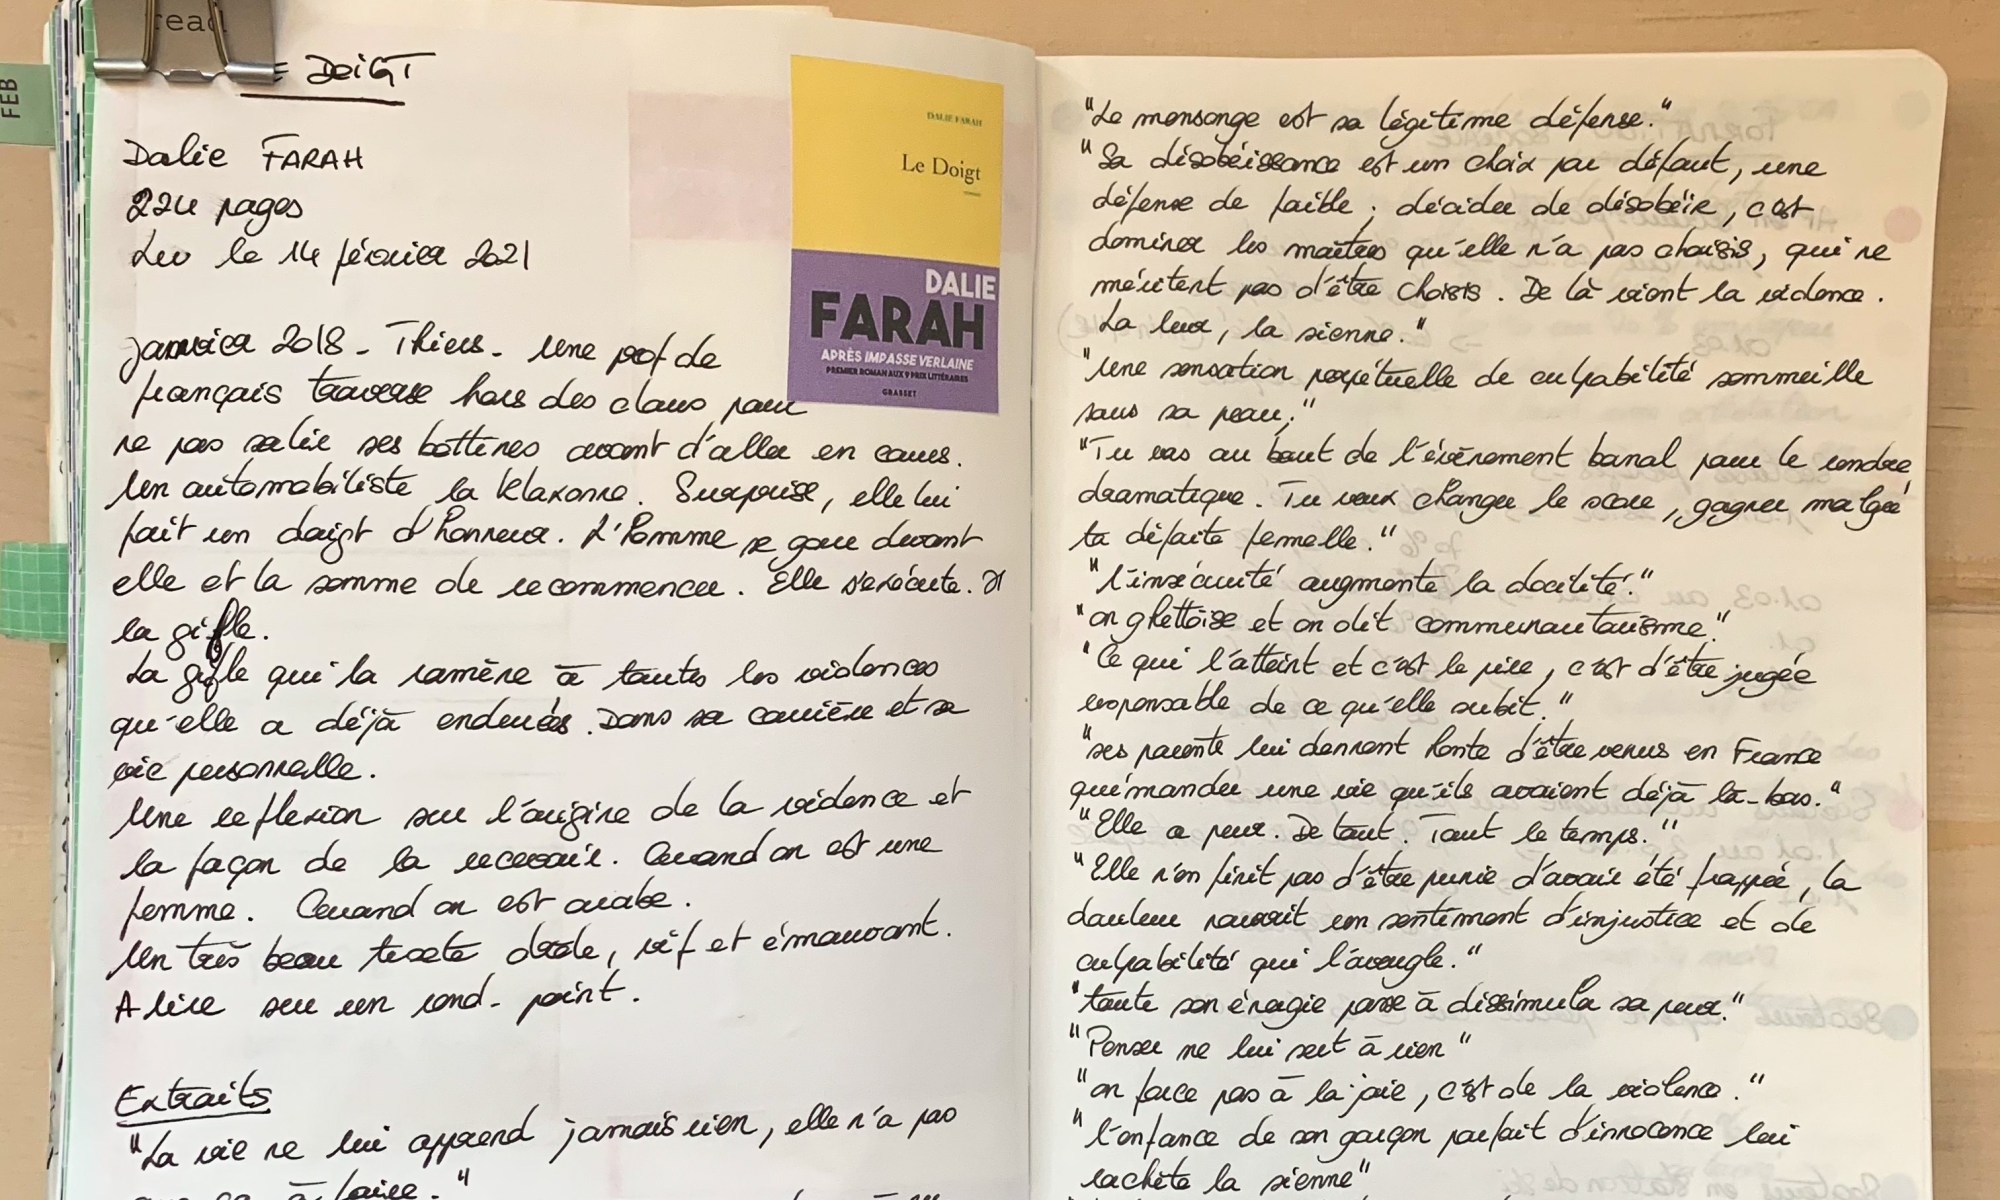 read
FEB
DOIGT
Dalie FARAH
224 pages
Lu le 14 février 2021
DALIE FARAH
Le Doigt
roman
DALIE
FARAH
APRÈS IMPASSE VERLAINE
PREMIER ROMAN AUX 9 PRIX LITTÉRAIRES
GRASSET
janvier 2018 - Thiers - Une prof de
français traverse hors des clous pour
ne pas salir ses bottines avant d'aller en cours.
Un automobiliste la klaxonne. Surprise, elle lui
fait un doigt d'honneur. L'homme se gare devant
elle et la somme de recommencer. Elle s'exécute. Il
la gifle.
La gifle qui la ramène à toutes les violences
qu'elle a déjà endurées. Dans sa carrière et sa
vie personnelle.
Une reflexion sur l'origine de la violence et
la façon de la recevoir. Quand on est une
femme. Quand on est arabe.
Un très beau texte drôle, vif et émouvant.
A lire sur un rond-point.
Extraits
"La vie ne lui apprend jamais rien, elle n'a pas
que ça à faire."
"Le mensonge est sa légitime défense."
"Sa désobéissance est un choix par défaut, une
défense de faible ; décider de désobéir, c'est
dominer les maîtres qu'elle n'a pas choisis, qui ne
méritent pas d'être choisis. De là vient la violence.
La leur, la sienne."
"Une sensation perpétuelle de culpabilité sommeille
sous sa peau."
"Tu vas au bout de l'évènement banal pour le rendre
dramatique. Tu veux changer le score, gagner malgré
ta défaite femelle."
"l'insécurité augmente la docilité."
"on ghettoïse et on dit communautarisme."
"Ce qui l'atteint et c'est le pire, c'est d'être jugée
responsable de ce qu'elle subit."
"ses parents lui donnent honte d'être venus en France
quémander une vie qu'ils avaient déjà là-bas."
"Elle a peur. De tout. Tout le temps."
"Elle n'en finit pas d'être punie d'avoir été frappée, la
douleur nourrit un sentiment d'injustice et de
culpabilité qui l'aveugle."
"toute son énergie passe à dissimuler sa peur."
"Penser ne lui sert à rien"
"on force pas à la joie, c'est de la violence."
"l'enfance de son garçon parfait d'innocence lui
rachète la sienne"